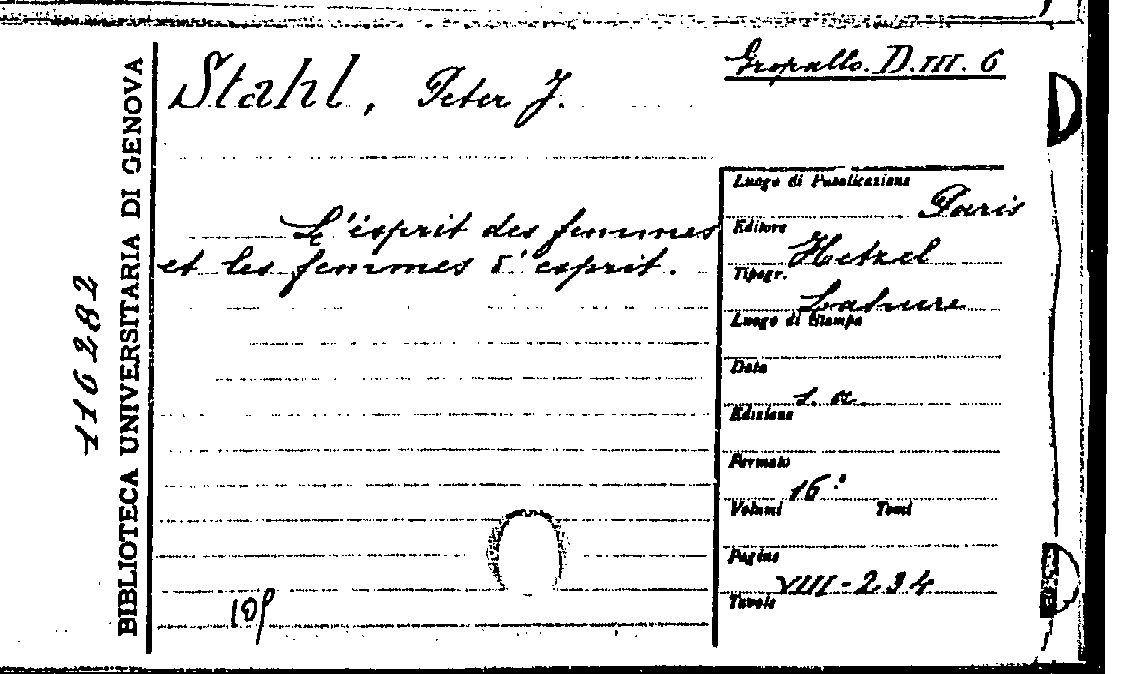 Stahl, Peter J.
Gropallo. D.III.6
L'esprit des femmes
et les femmes d'esprit.
Luogo di Pubblicazione
Paris
Editore
Hetzel
Tipogr.
Lahure
Luogo di Stampa
Data
s. a.
Edizione
Formato
16º
Volumi Tomi
Pagine
VIII-234
Tavole
BIBLIOTECA UNIVERSITARIA DI GENOVA
116282